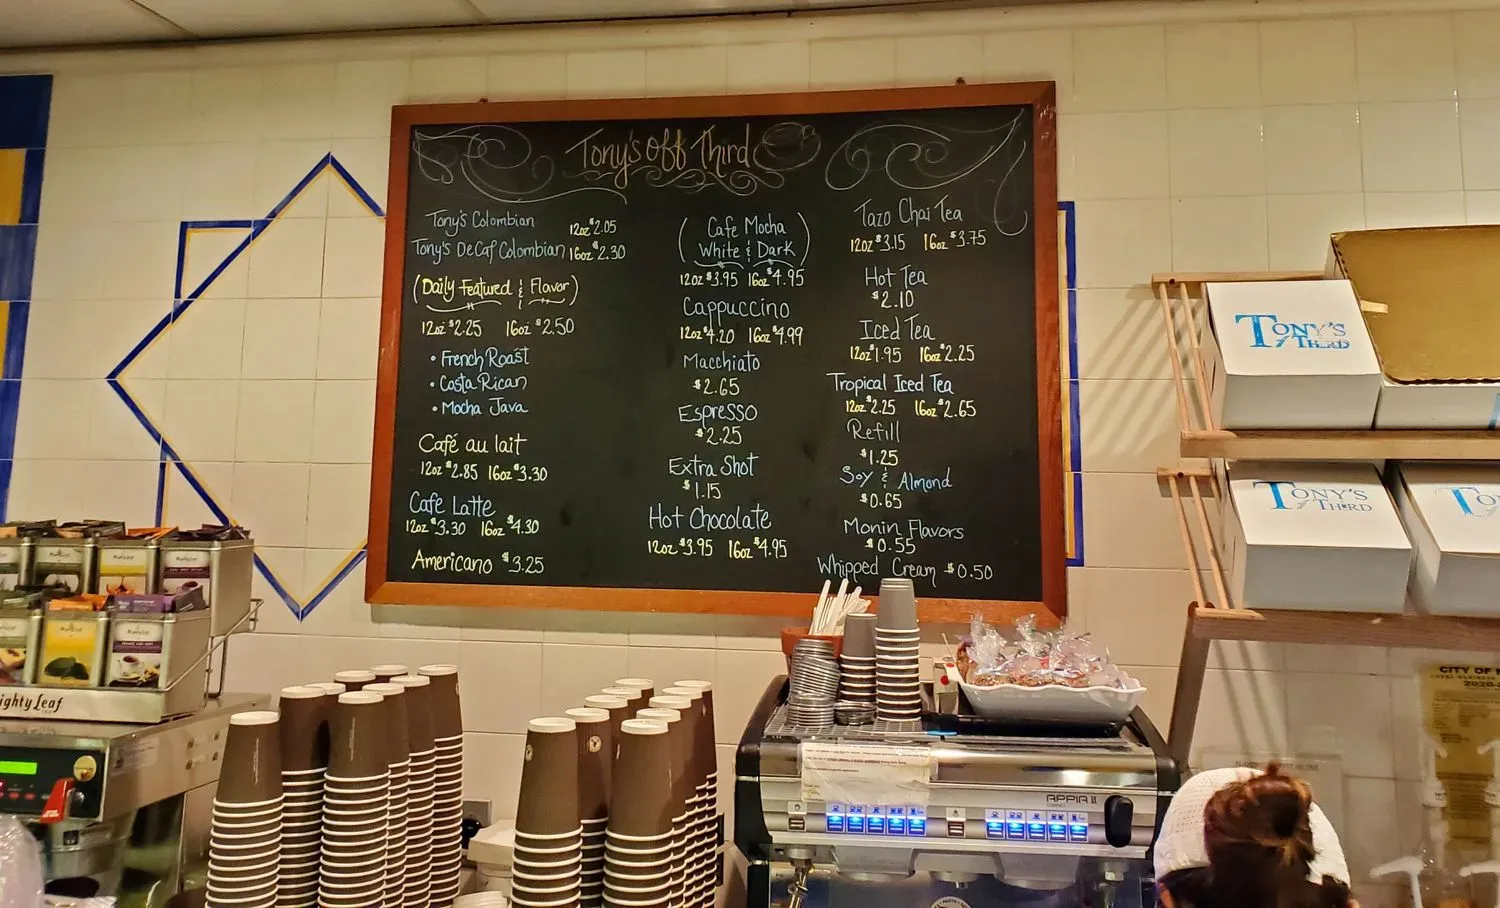 Tony's Off Third
Tony's Colombian 12oz $2.05
Tony's DeCaf Colombian 16oz $2.30
(Daily Featured & Flavor)
12oz $2.25 16oz $2.50
• French Roast
• Costa Rican
• Mocha Java
Café au lait
12oz $2.85 16oz $3.30
Cafe Latte
12oz $3.30 16oz $4.30
Americano $3.25
(Cafe Mocha
White & Dark)
12oz $3.95 16oz $4.95
Cappuccino
12oz $4.20 16oz $4.99
Macchiato
$2.65
Espresso
$2.25
Extra Shot
$1.15
Hot Chocolate
12oz $3.95 16oz $4.95
Tazo Chai Tea
12oz $3.15 16oz $3.75
Hot Tea
$2.10
Iced Tea
12oz $1.95 16oz $2.25
Tropical Iced Tea
12oz $2.25 16oz $2.65
Refill
$1.25
Soy & Almond
$0.65
Monin Flavors
$0.55
Whipped Cream $0.50
TONY'S
THIRD
TONY'S
THIRD
To
ighty Leaf
APPIA II
CITY OF
2020-